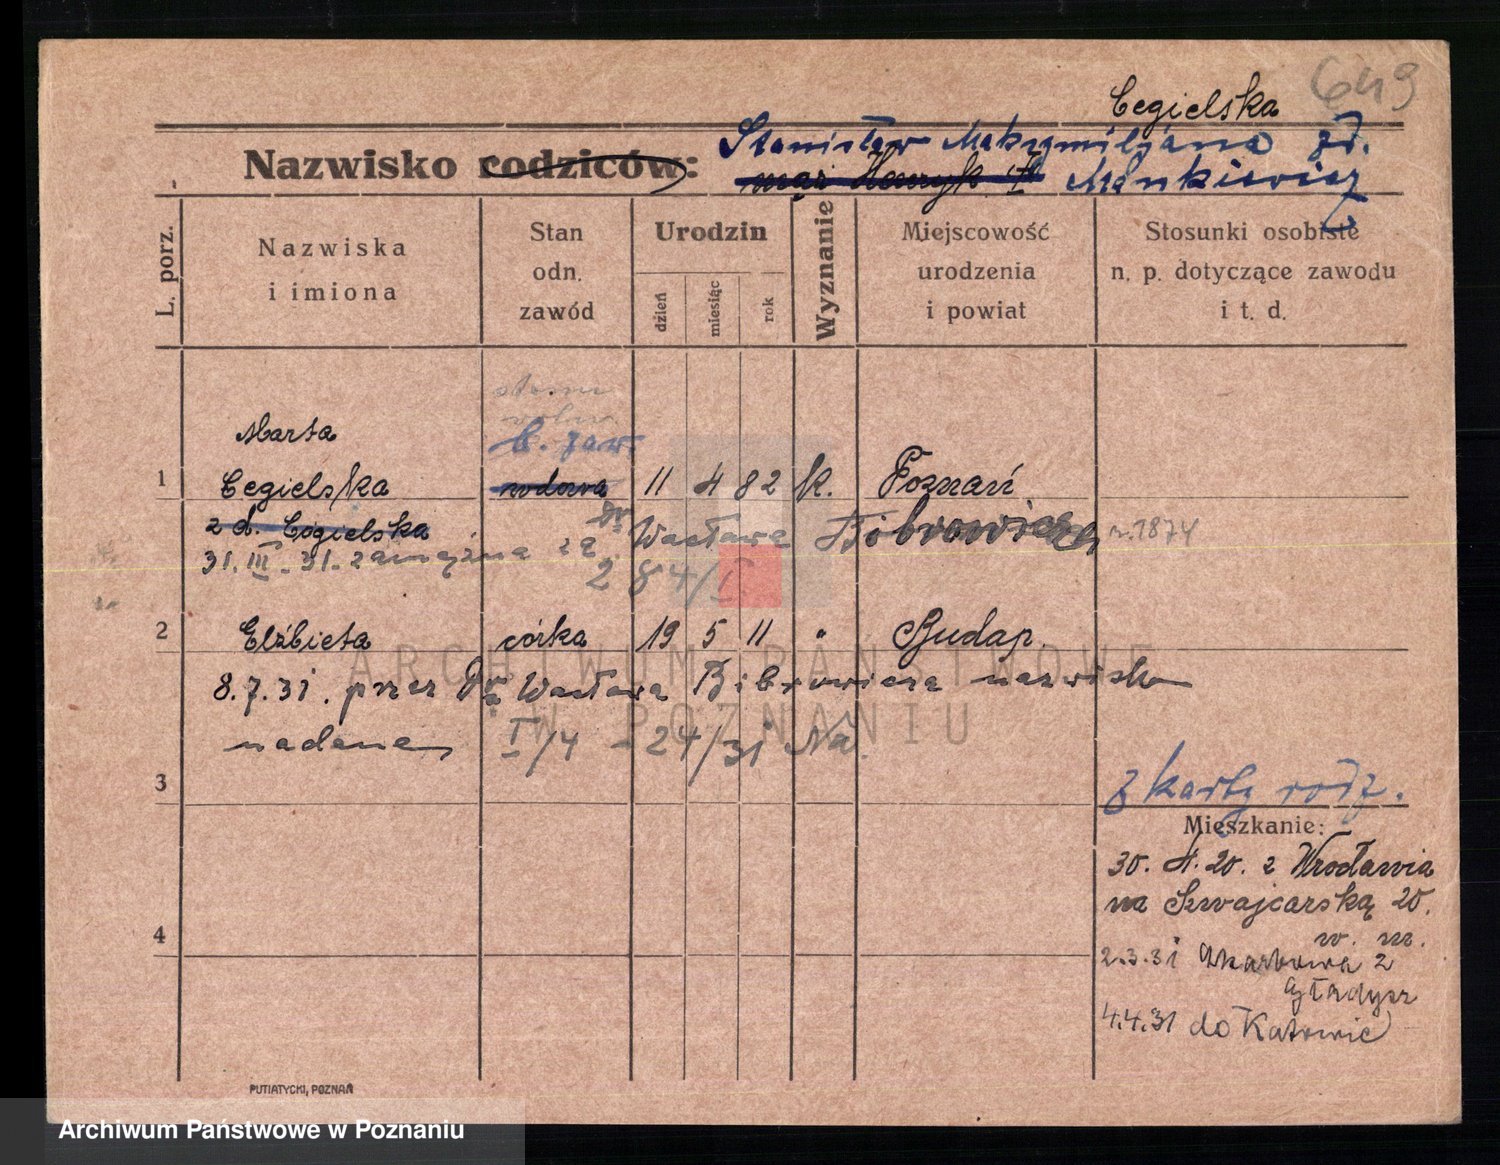 649
Cegielska
Nazwisko rodziców: Stanisław Maksymiljana zd.
mąż Henryk Mankiewicz
L. porz.
Nazwiska
i imiona
Stan
odn.
zawód
Urodzin
dzień
miesiąc
rok
Wyznanie
Miejscowość
urodzenia
i powiat
Stosunki osobiste
n. p. dotyczące zawodu
i t. d.
stanu
wolny
b. zaw.
Marta
1 Cegielska wdowa 11 4 82 k. Poznań
z d. Cegielska
31. III. 31. zamężna za Dr Wacława Bibrowicza r. 1874
284/I.
2 Elżbieta córka 19 5 11 " Budap.
8.7.31. przez Dra Wacława Bibrowicza nazwisko
nadane I/4 - 24/31 Na
3
z karty rodz.
Mieszkanie:
30. 4. 20. z Wrocławia
na Szwajcarską 20.
w. m.
4
2.3.31 Skarbowa 2
Gładysz
4.4.31 do Katowic
PUTIATYCKI, POZNAŃ
ARCHIWUM PAŃSTWOWE
W POZNANIU
Archiwum Państwowe w Poznaniu